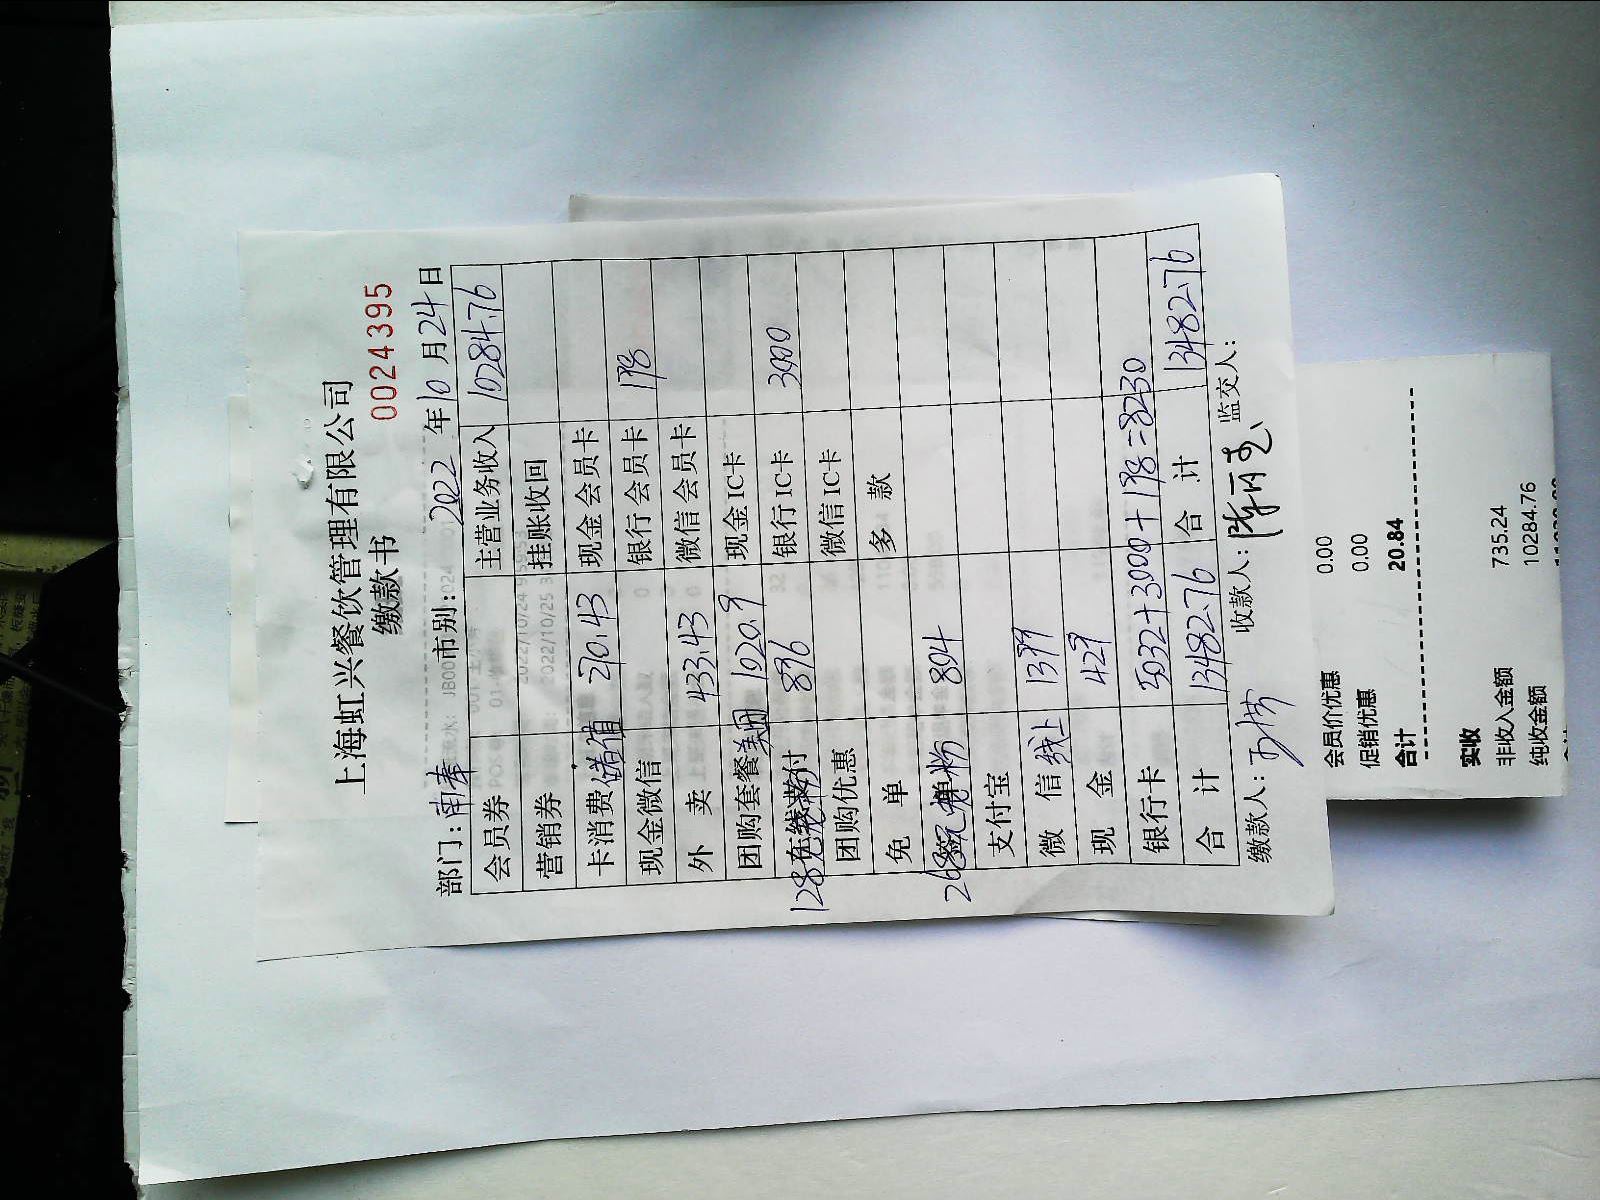 上海虹兴餐饮管理有限公司
缴款书
00024395
部门:南奉 市别: 2022 年 10 月 24 日
会员券 主营业务收入 10284.76
营销券 挂账收回
卡消费 储值 270.43 现金会员卡
现金微信 银行会员卡 198
外 卖 433.43 微信会员卡
团购套餐 美团 1020.9 现金IC卡
128 896 银行IC卡 3000
团购优惠 微信IC卡
免 单 多 款
268 804
支付宝
微 信 线上 1399
现 金 429
银行卡 5032+3000+198=8230
合 计 13482.76 合 计 13482.76
缴款人: 收款人: 监交人:
会员价优惠 0.00
促销优惠 0.00
合计 20.84
实收
非收入金额 735.24
纯收金额 10284.76